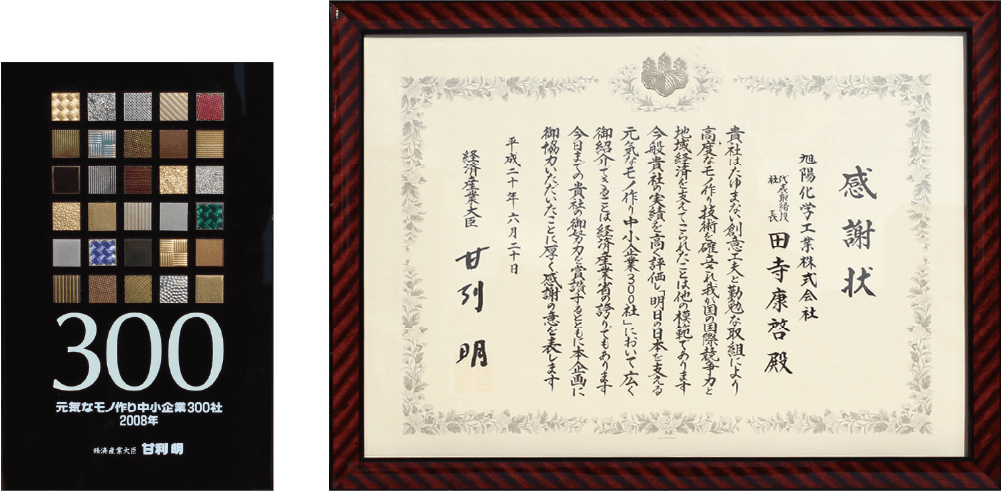 300
元気なモノ作り中小企業300社
2008年
経済産業大臣 甘利 明
感謝状
旭陽化学工業株式会社
代表取締役
社長
田寺康啓 殿
貴社はたゆまない創意工夫と勤勉な取組により
高度なモノ作り技術を確立され我が国の国際競争力と
地域経済を支えてこられたことは他の模範であります
今般貴社の実績を高く評価し「明日の日本を支える
元気なモノ作り中小企業300社」において広く
御紹介できることは経済産業省の誇りでもあります
今日までの貴社の御努力を賞讃するとともに本企画に
御協力いただいたことに厚く感謝の意を表します
平成二十年六月二十日
経済産業大臣 甘利 明